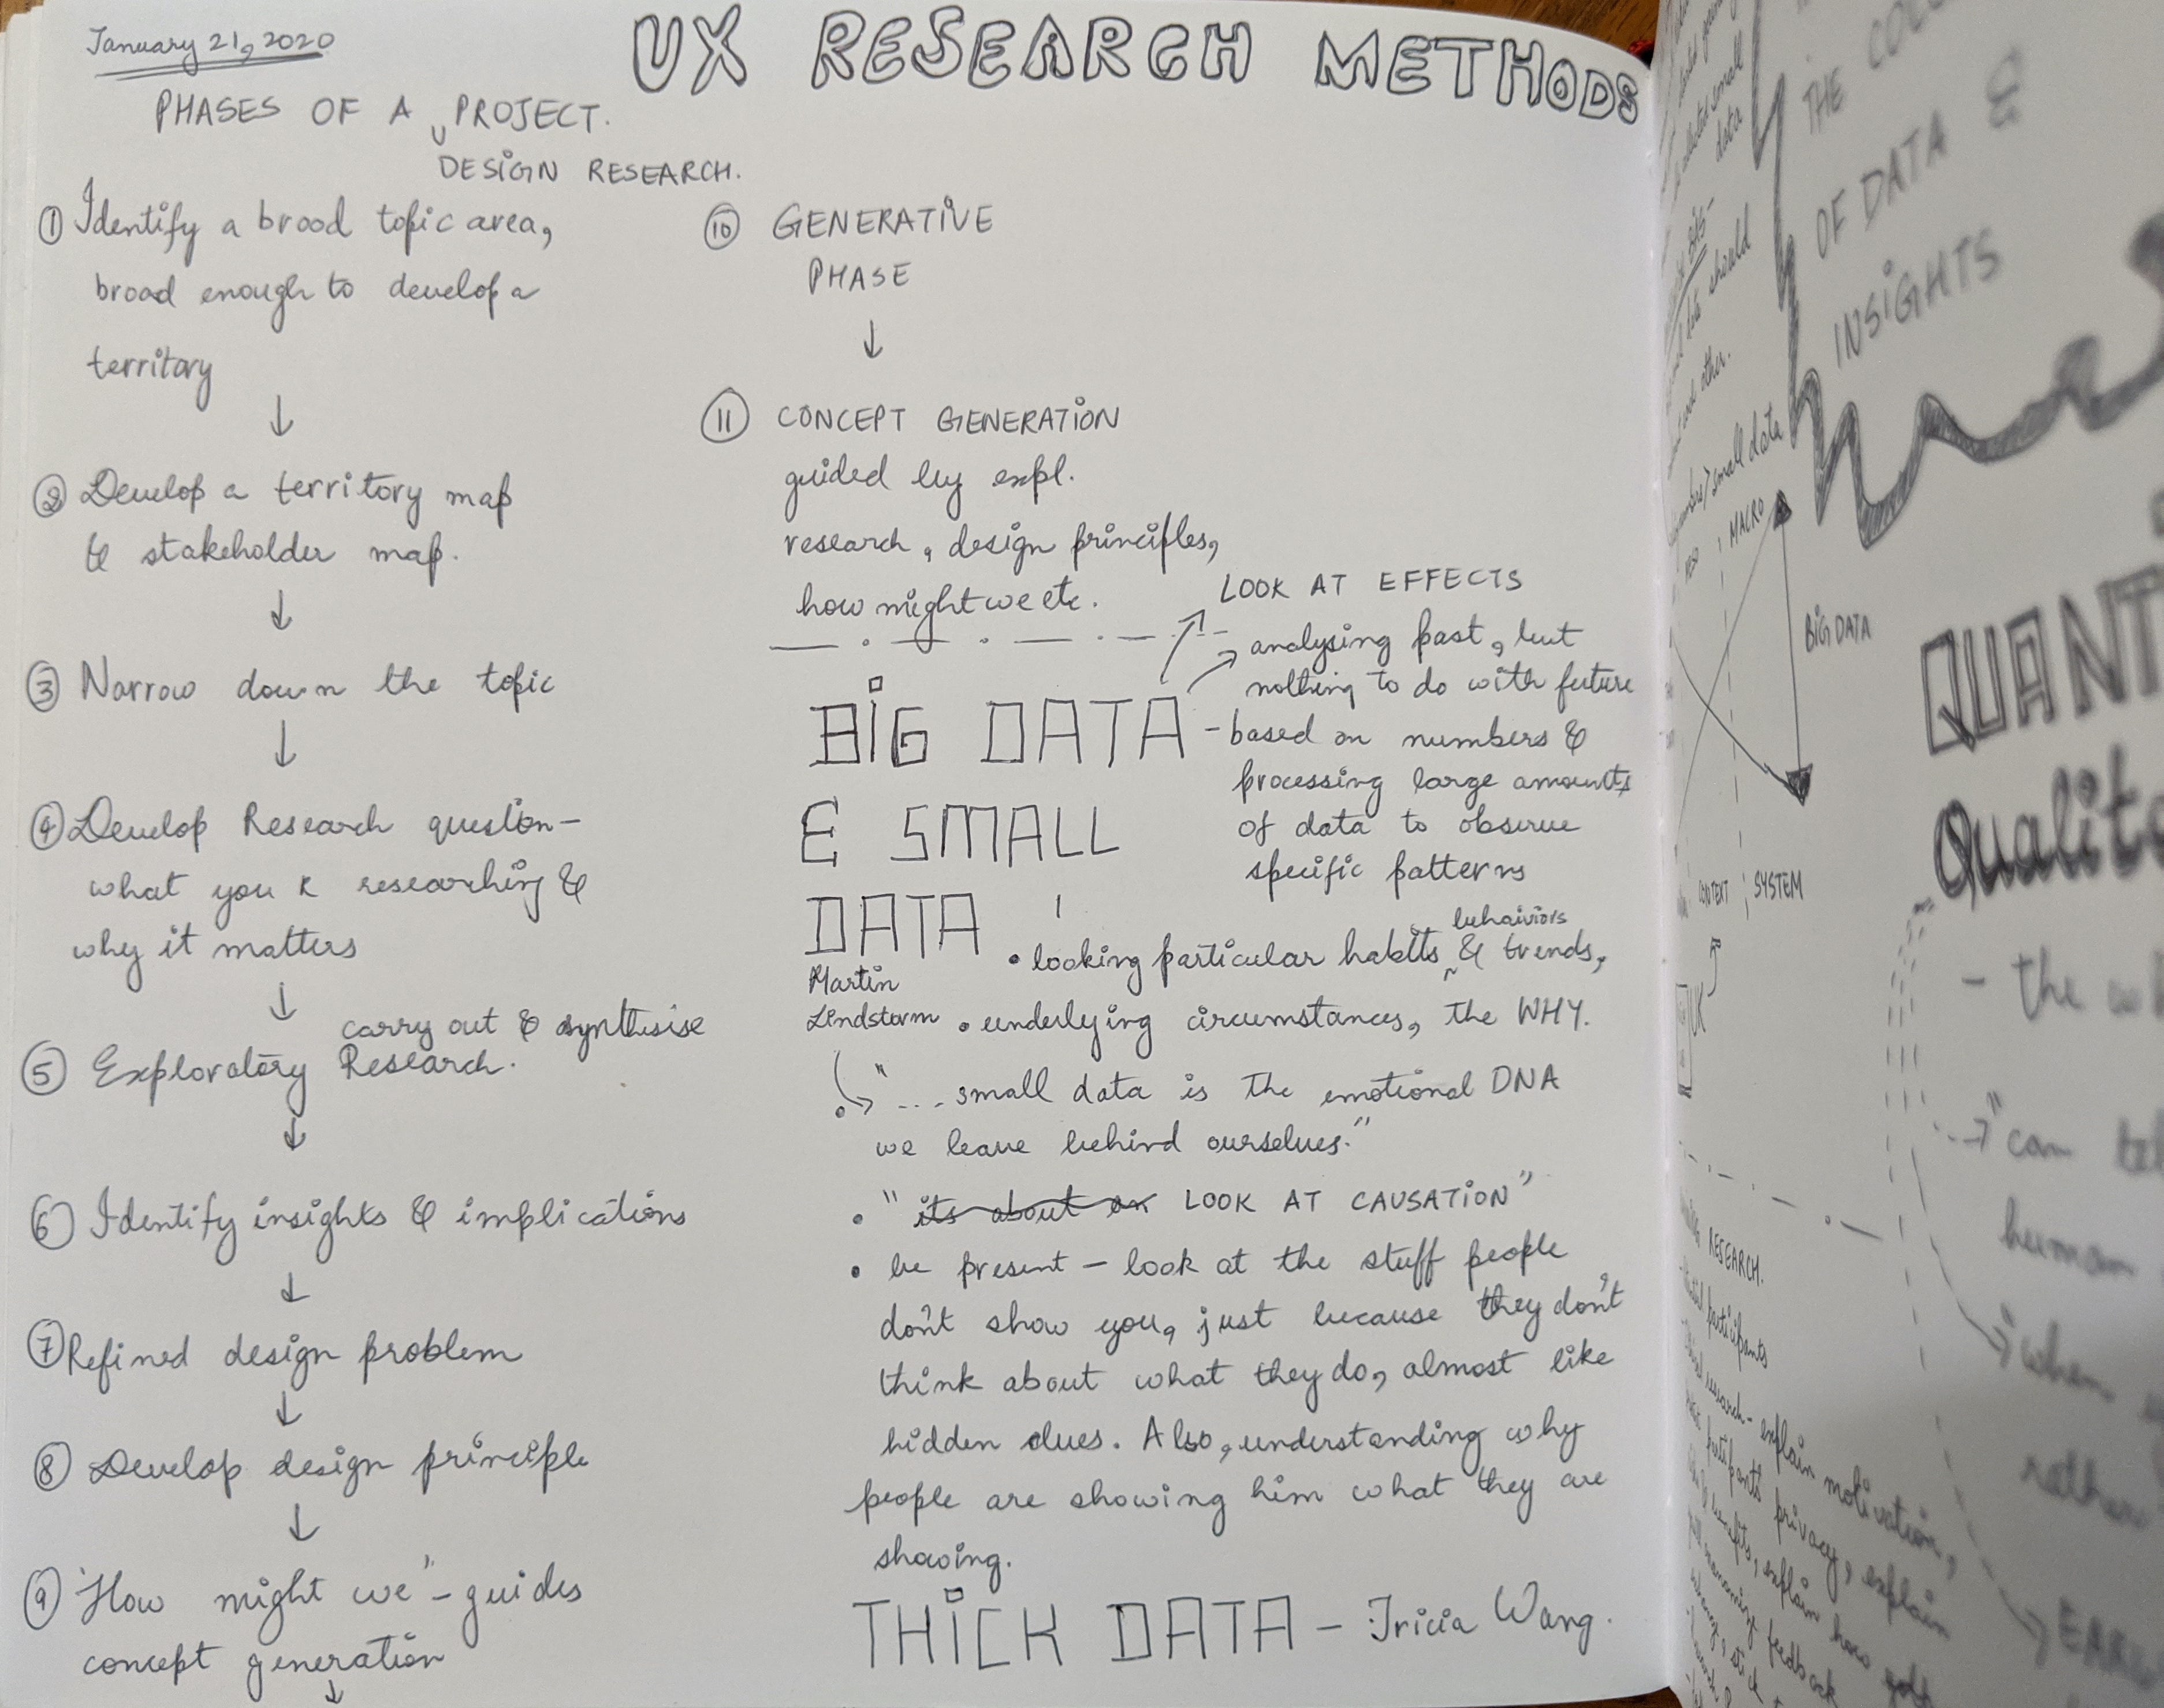 January 21, 2020
UX RESEARCH METHODS
PHASES OF A PROJECT.
DESIGN RESEARCH.
① Identify a broad topic area,
broad enough to develop a
territory
↓
② Develop a territory map
& stakeholder map.
↓
③ Narrow down the topic
↓
④ Develop Research question –
what you r researching &
why it matters
↓
carry out & synthesise
⑤ Exploratory Research.
↓
⑥ Identify insights & implications
↓
⑦ Refined design problem
↓
⑧ Develop design principle
↓
⑨ "How might we" – guides
concept generation
↓
⑩ GENERATIVE
PHASE
↓
⑪ CONCEPT GENERATION
guided by expl.
research, design principles,
how might we etc.
BIG DATA
& SMALL
DATA
LOOK AT EFFECTS
analysing past, but
nothing to do with future
– based on numbers &
processing large amounts
of data to observe
specific patterns
Martin
Lindstorm
• looking particular habits behaiviors & trends,
• underlying circumstances, the WHY.
"... small data is the emotional DNA
we leave behind ourselves."
• "its about LOOK AT CAUSATION"
• be present – look at the stuff people
don't show you, just because they don't
think about what they do, almost like
hidden clues. Also, understanding why
people are showing him what they are
showing.
THICK DATA – Tricia Wang.
small
data
should
other.
THE
OF DATA &
INSIGHTS
small data
MACRO
BIG DATA
CONTEXT SYSTEM
UK
RESEARCH.
participants
research – explain motivation,
privacy, explain
benefits, explain how
feedback
– the
"can
human
"when
rather